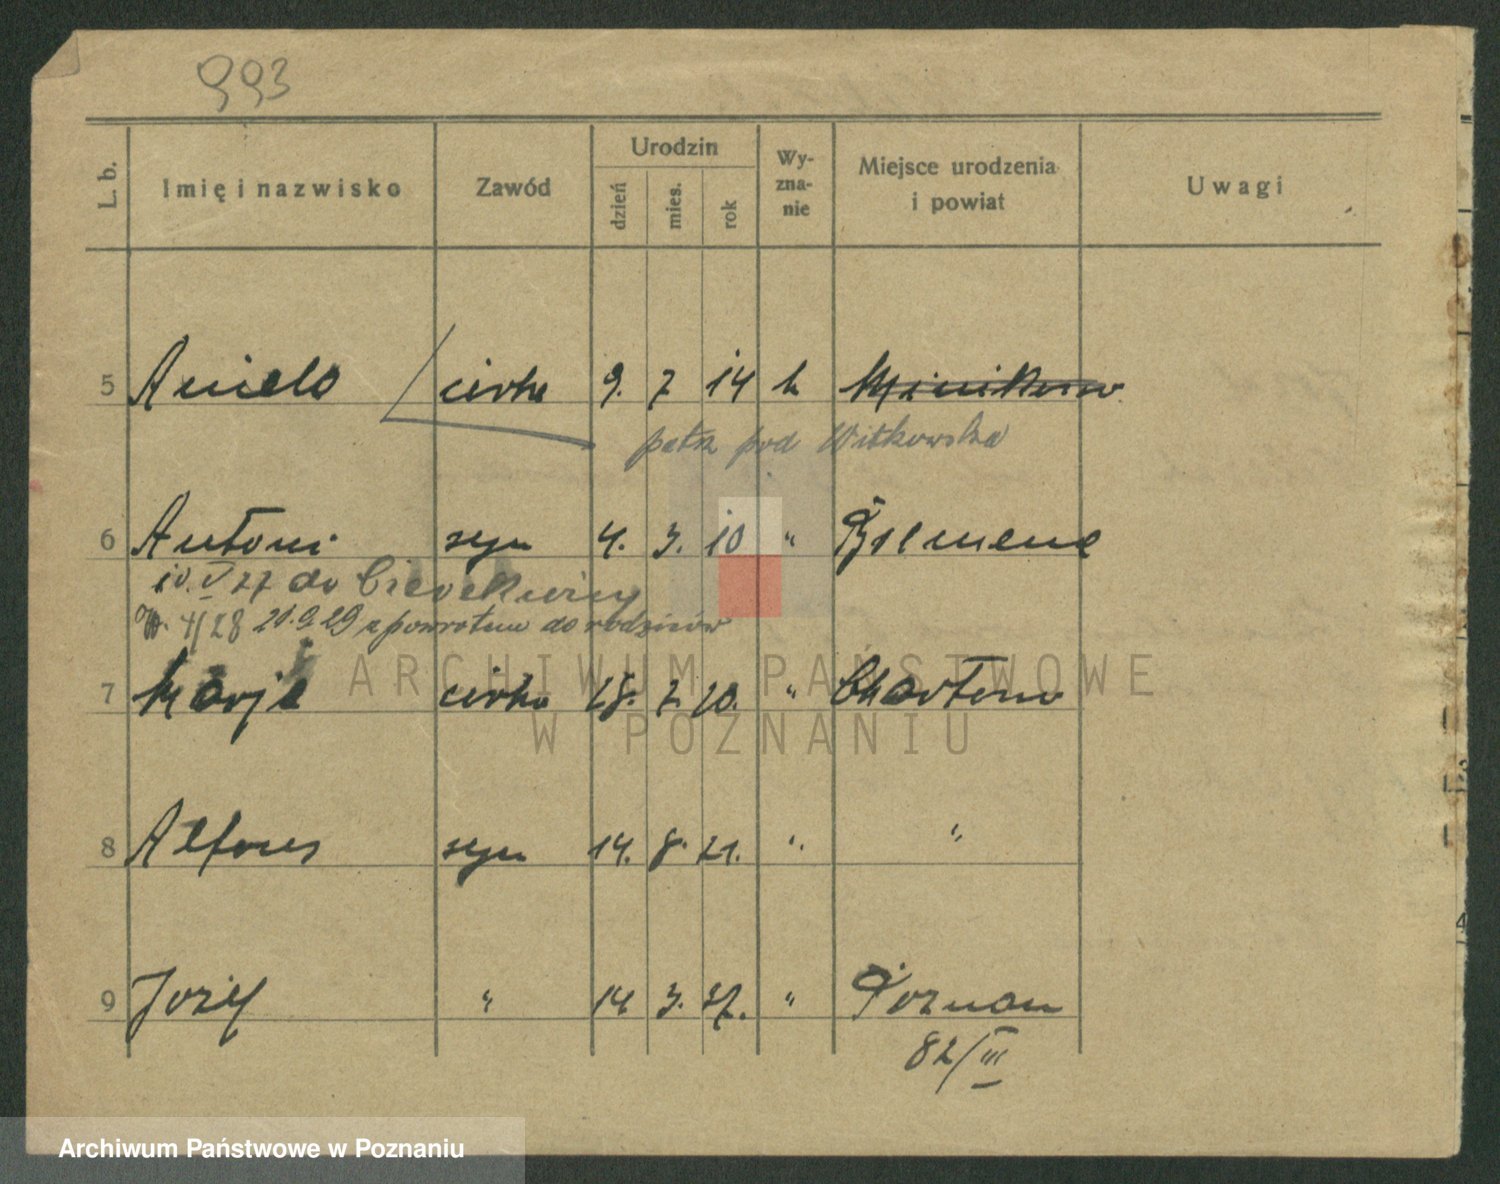 993
L. b. Imię i nazwisko Zawód Urodzin dzień mies. rok Wy-zna-nie Miejsce urodzenia i powiat Uwagi
5 Aniela córka 9. 7 14 k Minikowo
patrz pod Witkowska
6 Antoni syn 4. 3. 10 "
10.V 27 do
4/28 21.9.29 z powrotem do rodziców
7 Marja córka 28. 2. 20. " Chartowo
8 Alfons syn 14. 8. 21. " "
9 Józef " 14 3. 27. " Poznań
82/III
ARCHIWUM PAŃSTWOWE
W POZNANIU
Archiwum Państwowe w Poznaniu